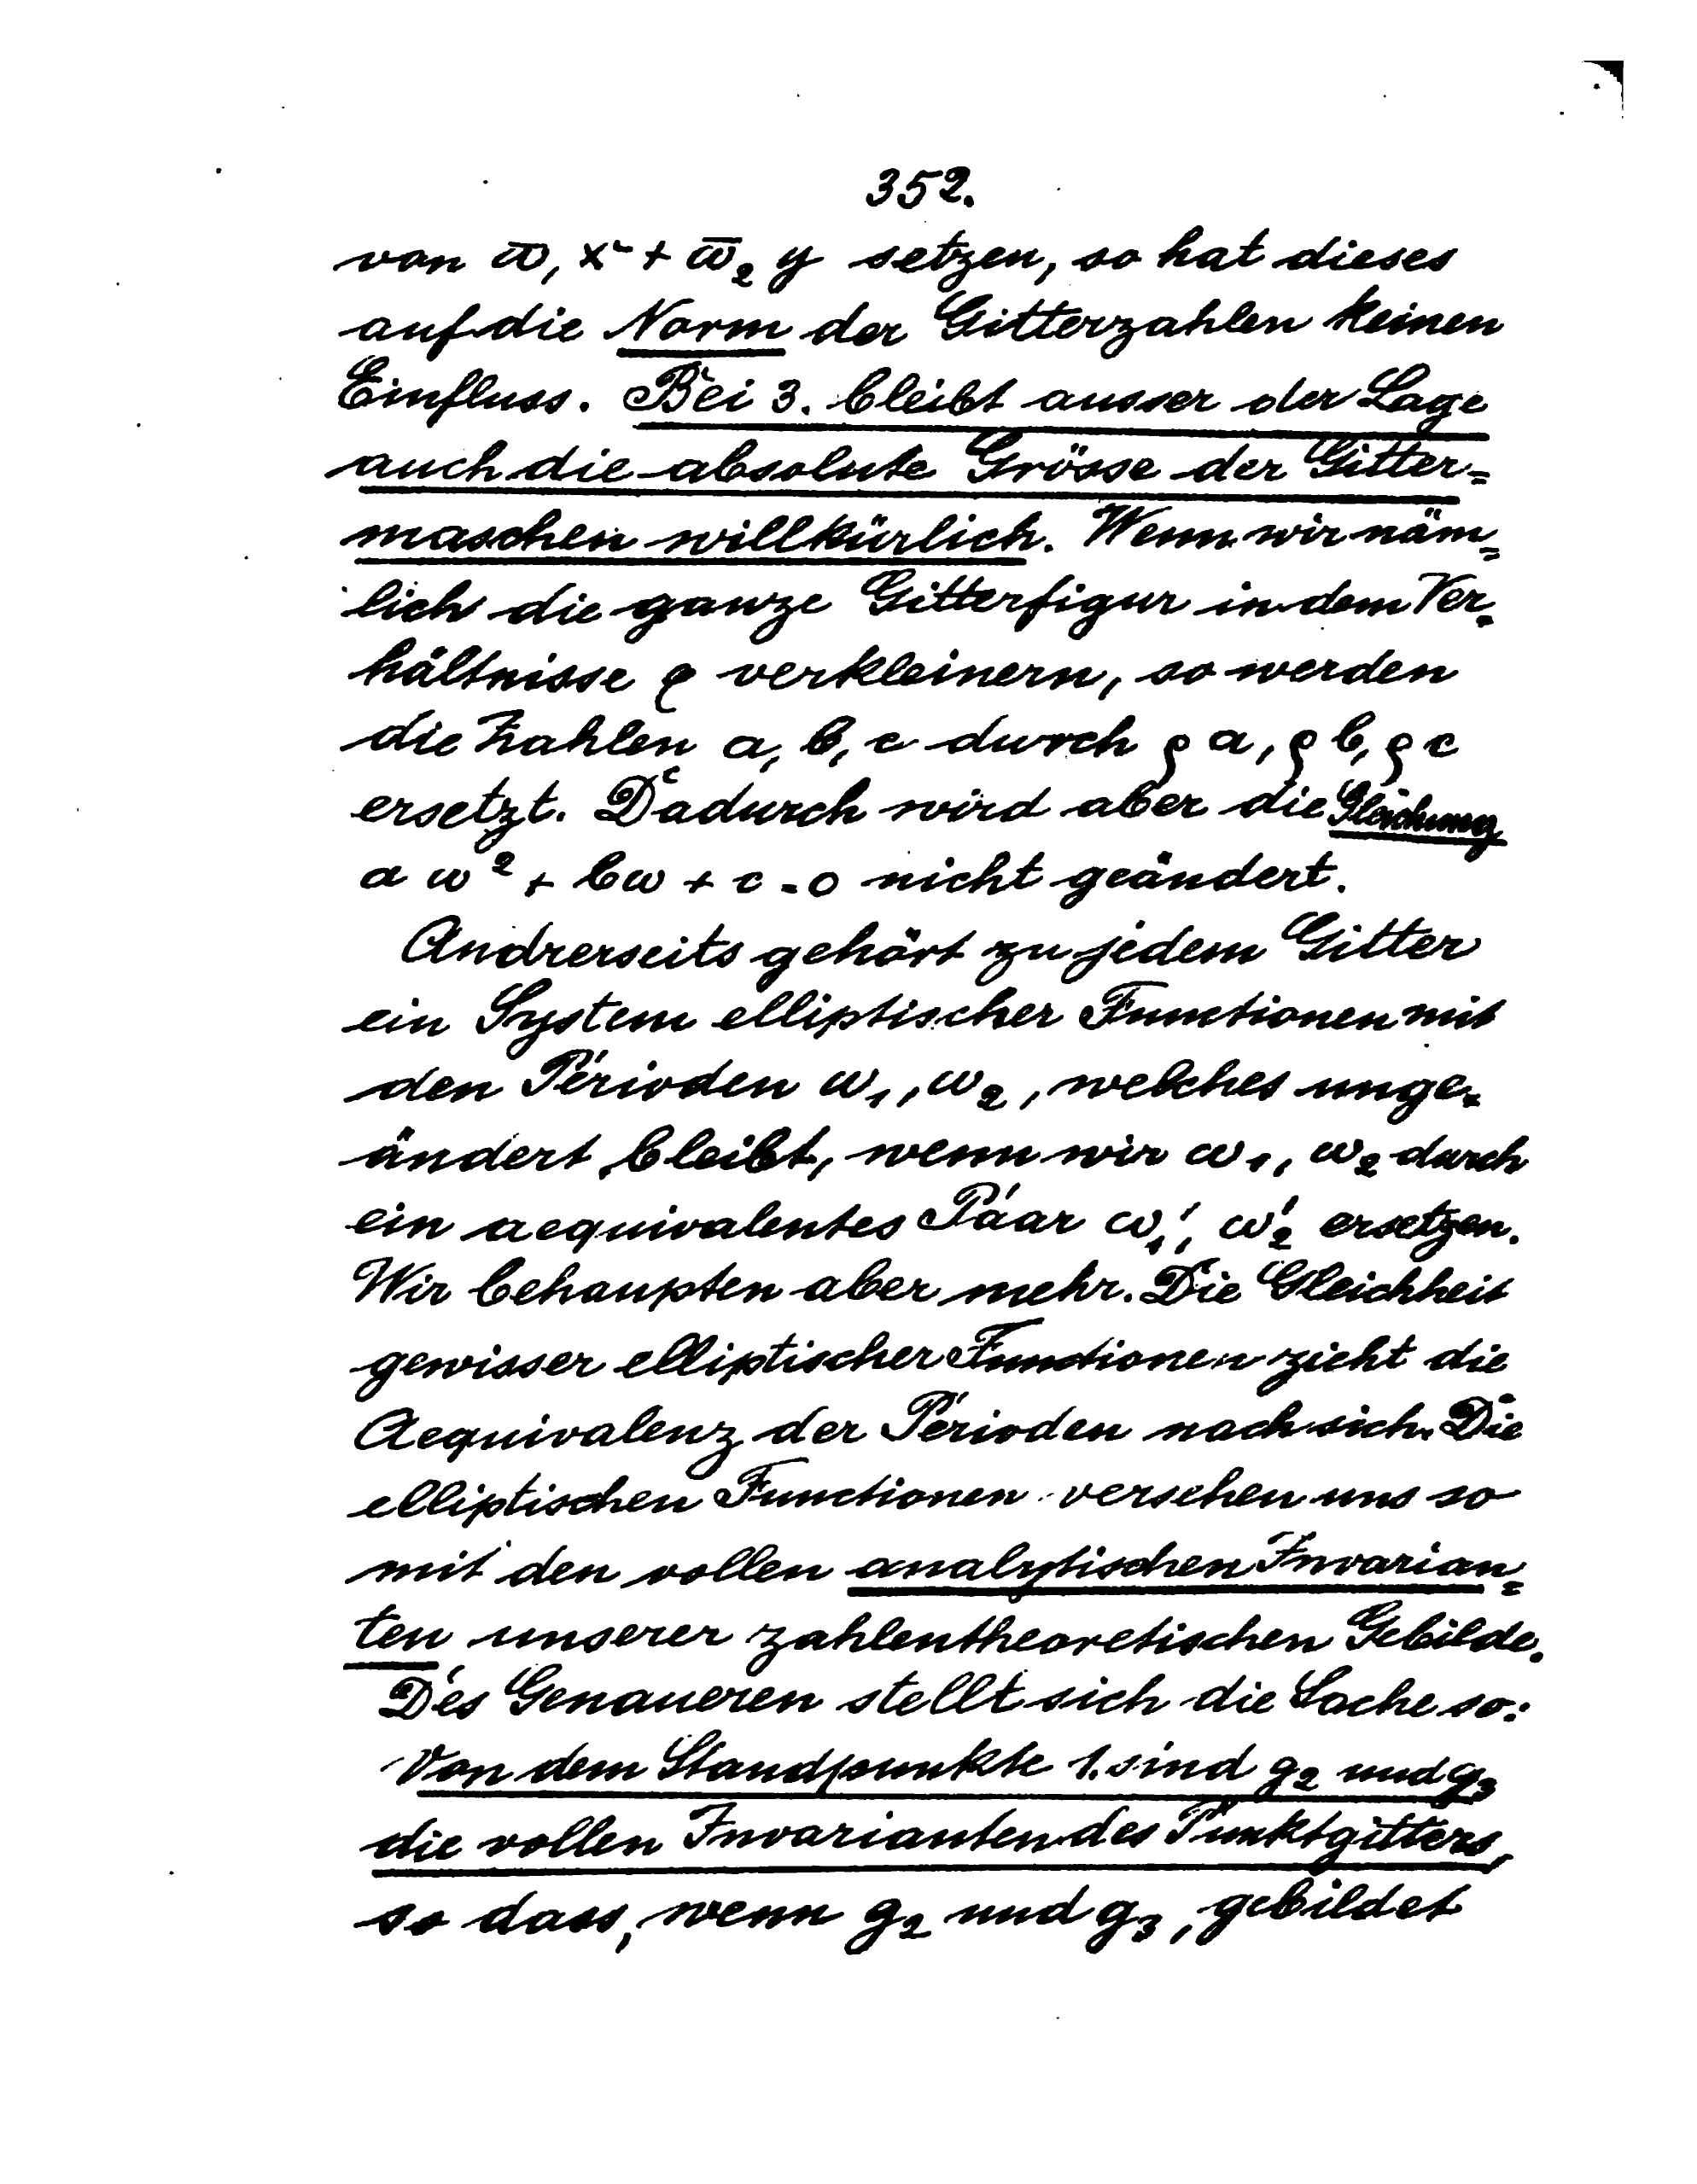 352.
von ω̄, x + ω̄₂ y setzen, so hat dieses
auf die Norm der Gitterzahlen keinen
Einfluss. Bei 3. bleibt ausser der Lage
auch die absolute Grösse der Gitter=
maschen willkürlich. Wenn wir näm=
lich die ganze Gitterfigur in dem Ver=
hältnisse ϱ verkleinern, so werden
die Zahlen a, b, c durch ϱ a, ϱ b, ϱ c
ersetzt. Dadurch wird aber die Gleichung
a ω² + bω + c = 0 nicht geändert.
Andrerseits gehört zu jedem Gitter
ein System elliptischer Functionen mit
den Perioden ω₁, ω₂, welches unge=
ändert bleibt, wenn wir ω₁, ω₂ durch
ein aequivalentes Paar ω₁', ω₂' ersetzen.
Wir behaupten aber mehr. Die Gleichheit
gewisser elliptischer Functionen zieht die
Aequivalenz der Perioden nach sich. Die
elliptischen Functionen versehen uns so
mit den vollen analytischen Invarian=
ten unserer zahlentheoretischen Gebilde.
Des Genaueren stellt sich die Sache so:
Von dem Standpunkte 1. sind g₂ und g₃
die vollen Invarianten des Punktgitters,
so dass, wenn g₂ und g₃, gebildet